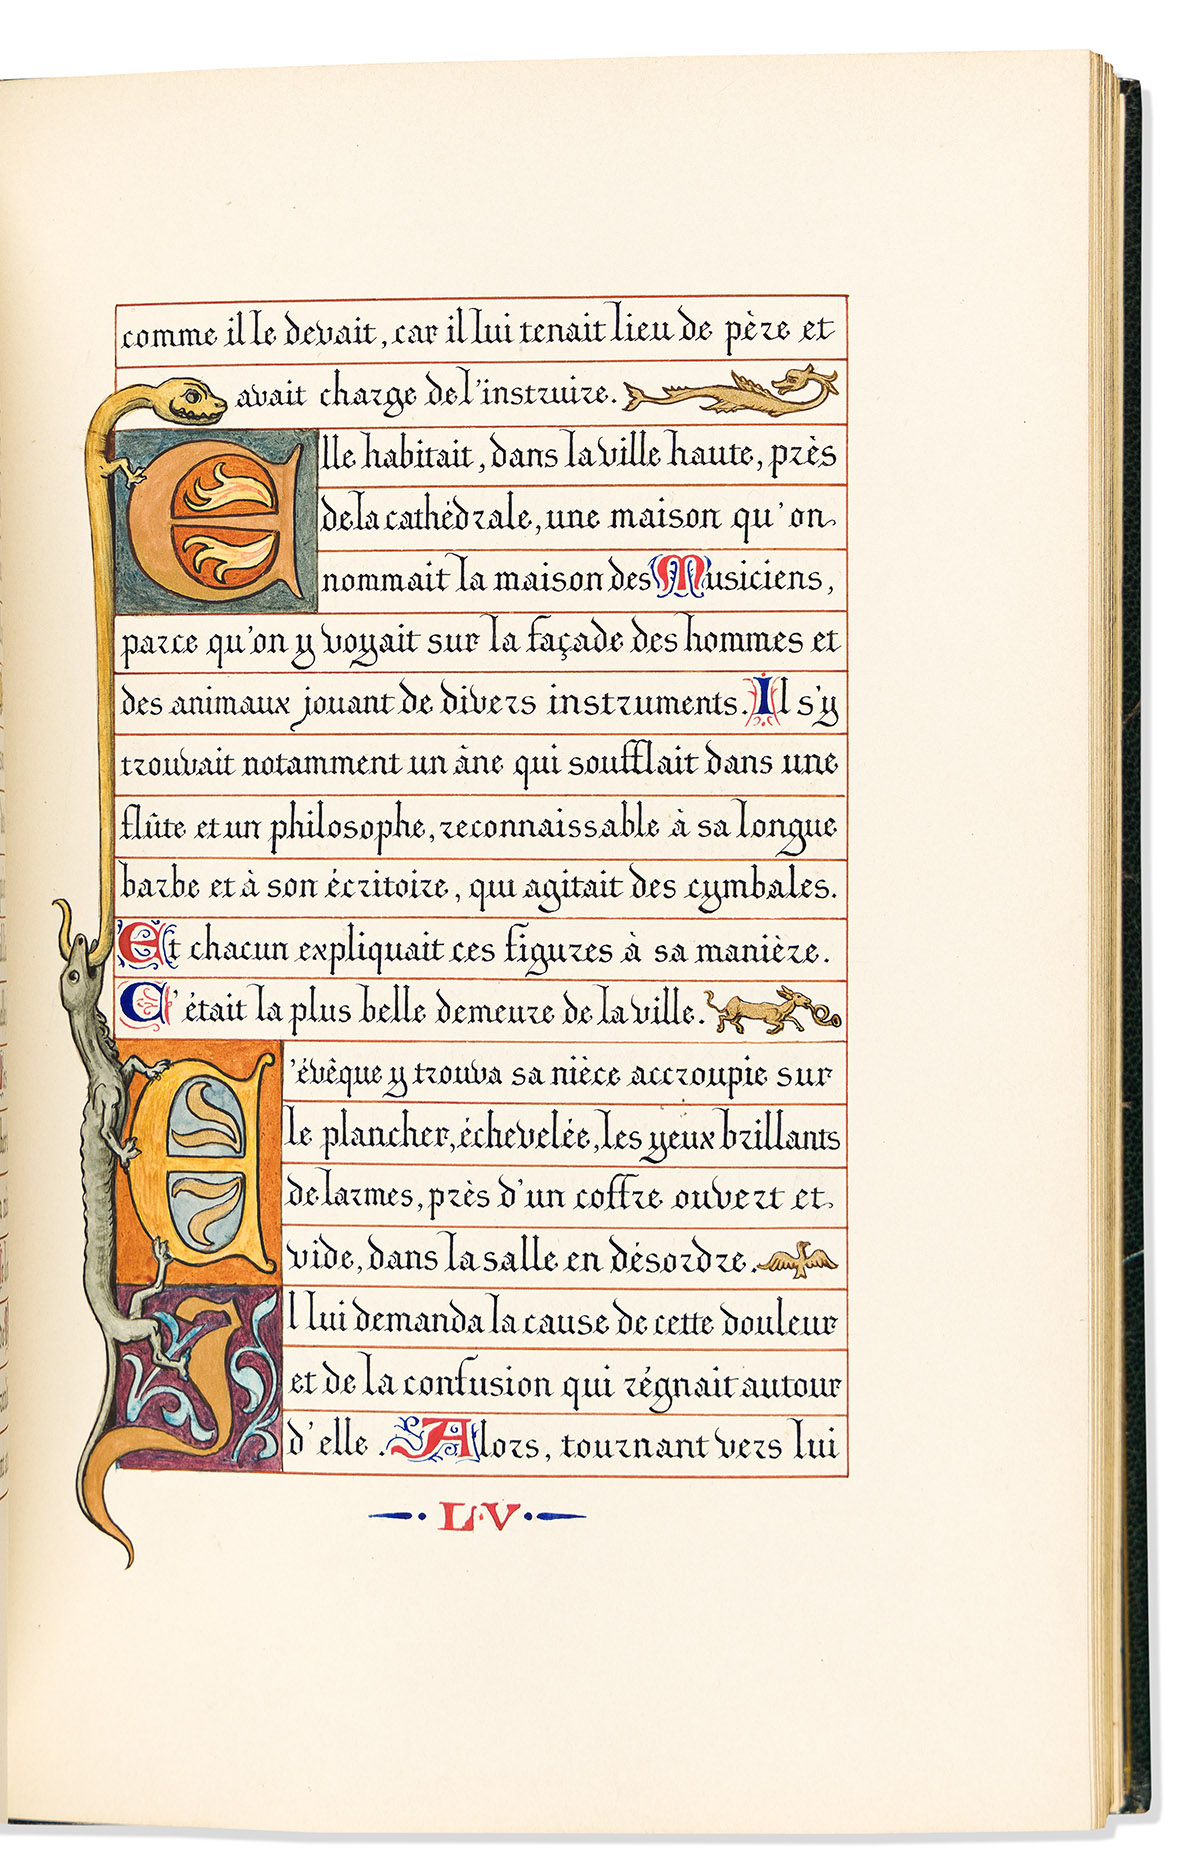 comme il le devait, car il lui tenait lieu de père et
avait charge de l'instruire.
Elle habitait, dans la ville haute, près
de la cathédrale, une maison qu'on
nommait la maison des Musiciens,
parce qu'on y voyait sur la façade des hommes et
des animaux jouant de divers instruments. Il s'y
trouvait notamment un âne qui soufflait dans une
flûte et un philosophe, reconnaissable à sa longue
barbe et à son écritoire, qui agitait des cymbales.
Et chacun expliquait ces figures à sa manière.
C'était la plus belle demeure de la ville.
E'évêque y trouva sa nièce accroupie sur
le plancher, échevelée, les yeux brillants
de larmes, près d'un coffre ouvert et
vide, dans la salle en désordre.
Il lui demanda la cause de cette douleur
et de la confusion qui régnait autour
d'elle. Alors, tournant vers lui
L·V